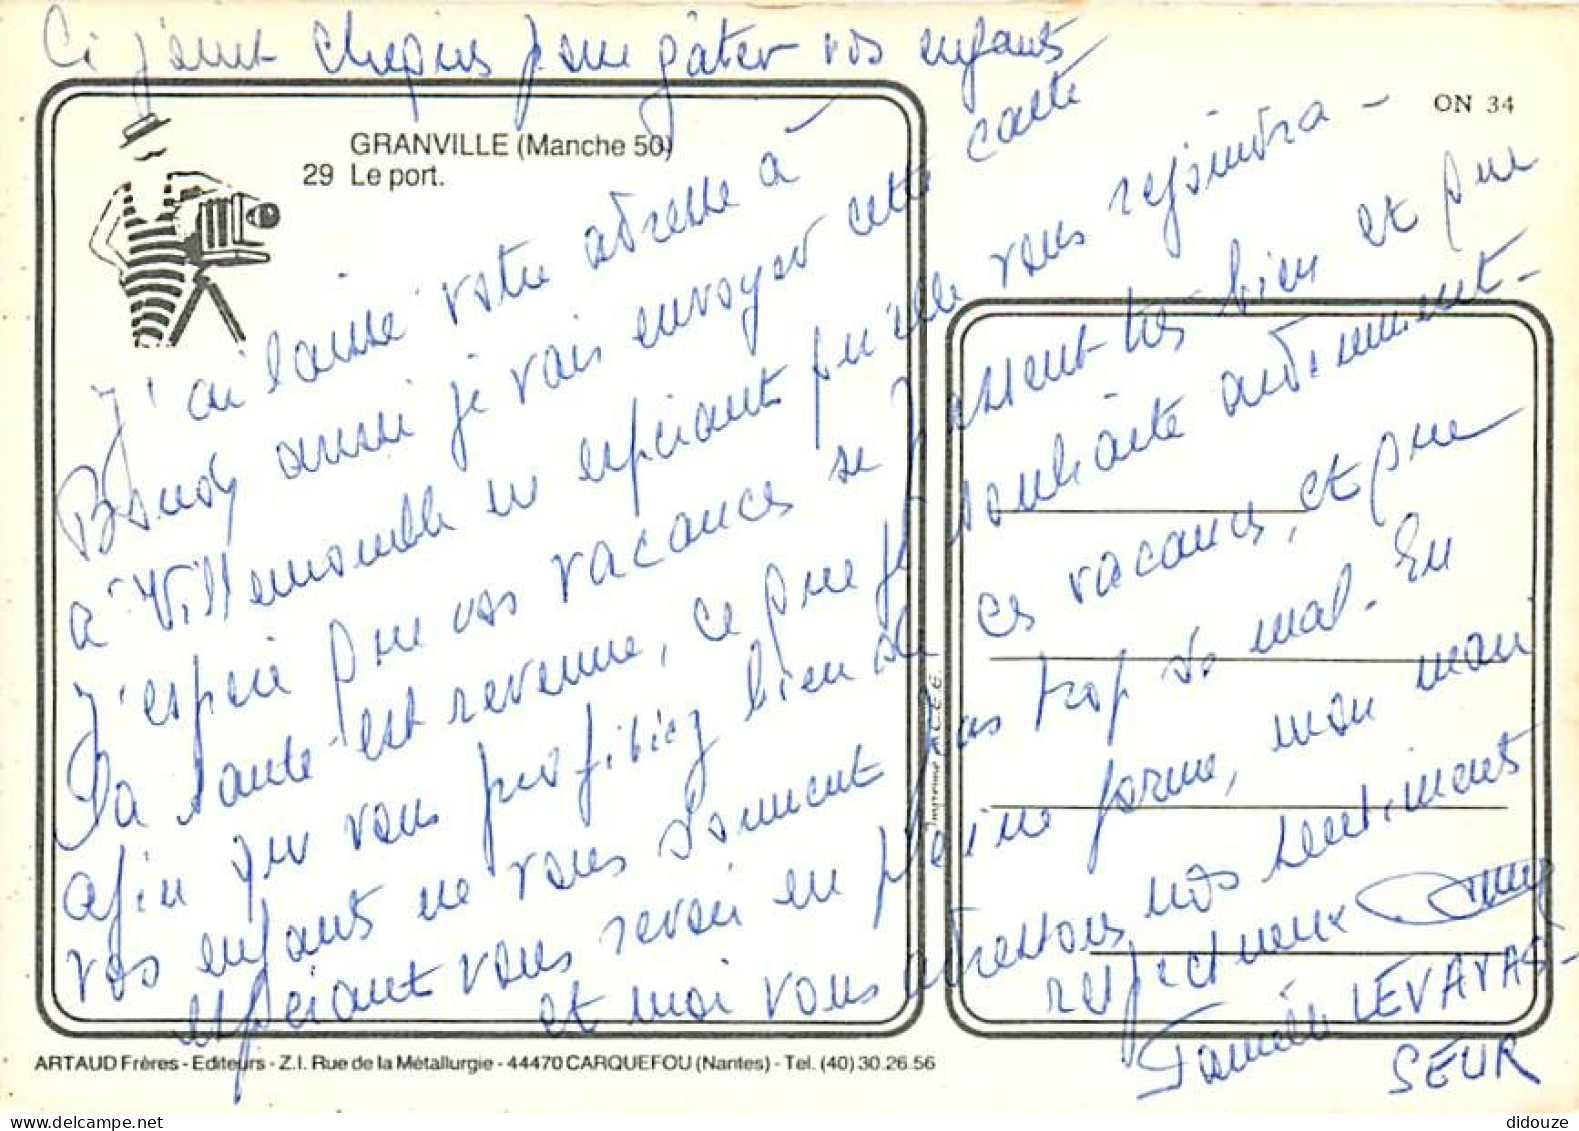 Ci joint chèque pour gâter vos enfants
ON 34
GRANVILLE (Manche 50)
29 Le port.
J'ai laissé votre adresse à
aussi je vais envoyer cette carte
à Villemomble en espérant qu'elle vous rejoindra -
J'espère que vos vacances se passent très bien et que
la santé est revenue, ce que je souhaite ardemment -
afin que vous profitiez bien de ces vacances, et que
vos enfants ne vous donnent pas trop de mal. En
espérant vous revoir en pleine forme, mon mari
et moi vous adressons nos sentiments
respectueux
Famille LEVAVAS-
SEUR
Imprimé C.E.E.
ARTAUD Frères - Editeurs - Z.I. Rue de la Métallurgie - 44470 CARQUEFOU (Nantes) - Tel. (40) 30.26.56
didouze